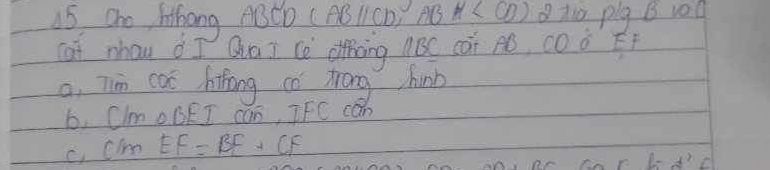 15 Cho hthang ABCD (AB//CD, AB < CD) 2 tia p/g B và C
cắt nhau ở I Qua I kẻ đthẳng //BC cắt AB, CD ở E F
a, Tìm các hthang có trong hình
b, C/m △BEI cân, IFC cân
c, C/m EF = BE + CF